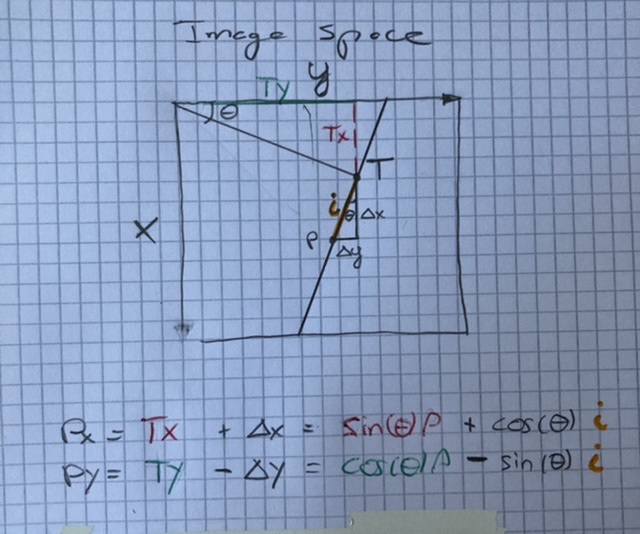 Image space
y
Ty
θ
Tx
T
i
θ
Δx
X
P
Δy
Px = Tx + Δx = sin(θ)ρ + cos(θ) i
Py = Ty - Δy = cos(θ)ρ - sin(θ) i